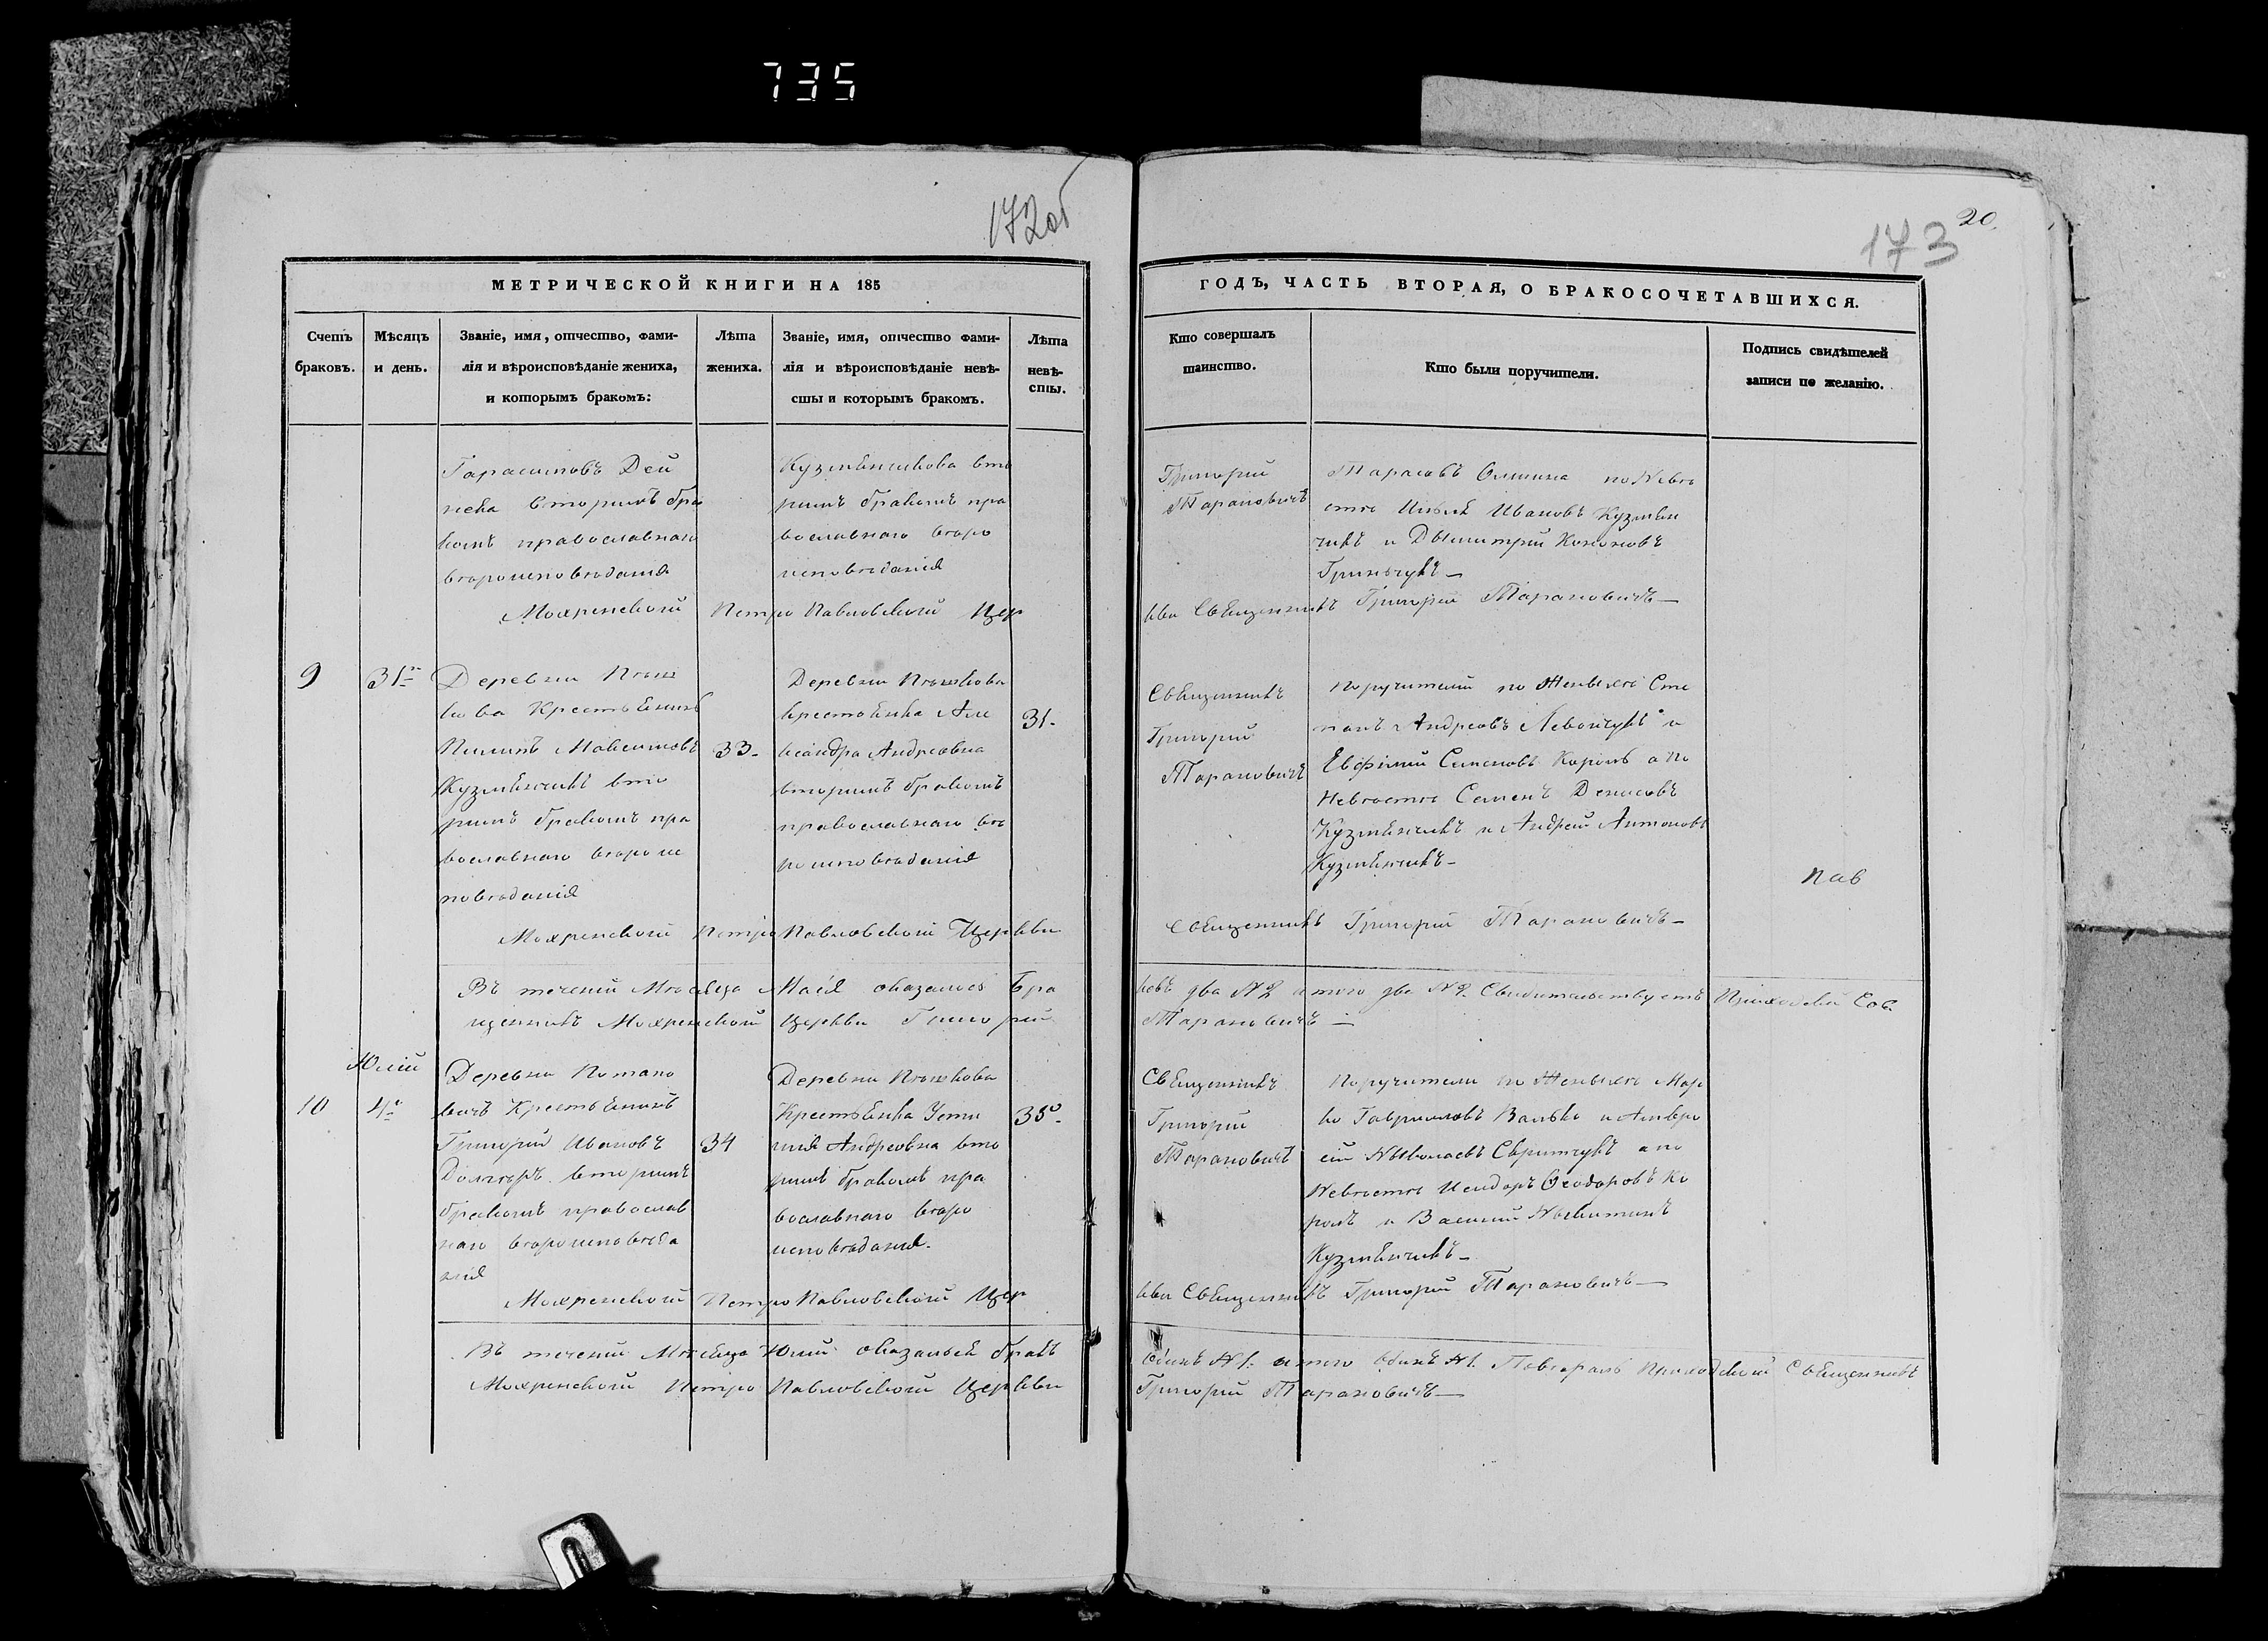 735
172об
173
20.
МЕТРИЧЕСКОЙ КНИГИ НА 185
ГОДЪ, ЧАСТЬ ВТОРАЯ, О БРАКОСОЧЕТАВШИХСЯ.
Счетъ браковъ.
Мѣсяцъ и день.
Званіе, имя, отчество, фами-
лія и вѣроисповѣданіе жениха,
и которымъ бракомъ:
Лѣта
жениха.
Званіе, имя, отчество фами-
лія и вѣроисповѣданіе невѣ-
сты и которымъ бракомъ.
Лѣта
невѣ-
сты.
Кто совершалъ
таинство.
Кто были поручители.
Подпись свидѣтелей
записи по желанію.
Гарасимовъ Дей
нека вторимъ бра
комъ православнаго
вѣроисповѣданія
Кузмѣнчикова вто
римъ бракомъ пра
вославнаго вѣро
исповѣданія
Григорій
Тарановичъ
Тарасовъ по Невѣ
стѣ Ивановъ Кузмѣн
чикъ и Дымитрій Кононовъ
Гринчукъ
Мохренской Петро Павловской Цер
кви Священникъ Григорій Тарановичъ
9
31го
Деревни Пѣш
кова Крестьянинъ
Пилипъ Максимовъ
Кузмѣнчикъ вто
римъ бракомъ пра
вославнаго вѣроис
повѣданія
33
Деревни Пѣшкова
крестьянка Але
ксандра Андреовна
вторимъ бракомъ
православнаго вѣ
роисповѣданія
31
Священникъ
Григорій
Тарановичъ
Поручители по Женихѣ Сте
панъ Андреовъ Левончукъ и
Евфимій Семеновъ Король а по
Невѣстѣ Семенъ Денисовъ
Кузмѣнчикъ и Андрей Антоновъ
Кузмѣнчикъ
Мохренской Петро Павловской Церкви
Священникъ Григорій Тарановичъ
Въ теченіи Мѣсяца Маія оказалось бра
ковъ два № 2 итого два № 2. Свидительствуетъ Приходскій Свя
щенникъ Мохренской Церкви Григорій
Тарановичъ
Юлій
10
4го
Деревни Потапо
вичъ Крестьянинъ
Григорій Ивановъ
вторимъ
бракомъ православ
наго вѣроисповѣда
нія
34
Деревни Пѣшкова
Крестьянка Усти
нія Андреовна вто
римъ бракомъ пра
вославнаго вѣро
исповѣданія.
Священникъ
Григорій
Тарановичъ
Поручители по Женихѣ Мар
ко Гавриловъ Валько и Амвро
сій Ныколаевъ Свритчукъ а по
Невѣстѣ Исидоръ Ѳеодоровъ Ко
роль и Василій Ныкитинъ
Кузмѣнчикъ
Мохренской Петро Павловской Цер
кви Священникъ Григорій Тарановичъ
Въ теченіи Мѣсяца Юлій оказался бракъ
одинъ №1. итого одинъ №1. Приходской Священникъ
Мохренской Петро Павловской Церкви
Григорій Тарановичъ